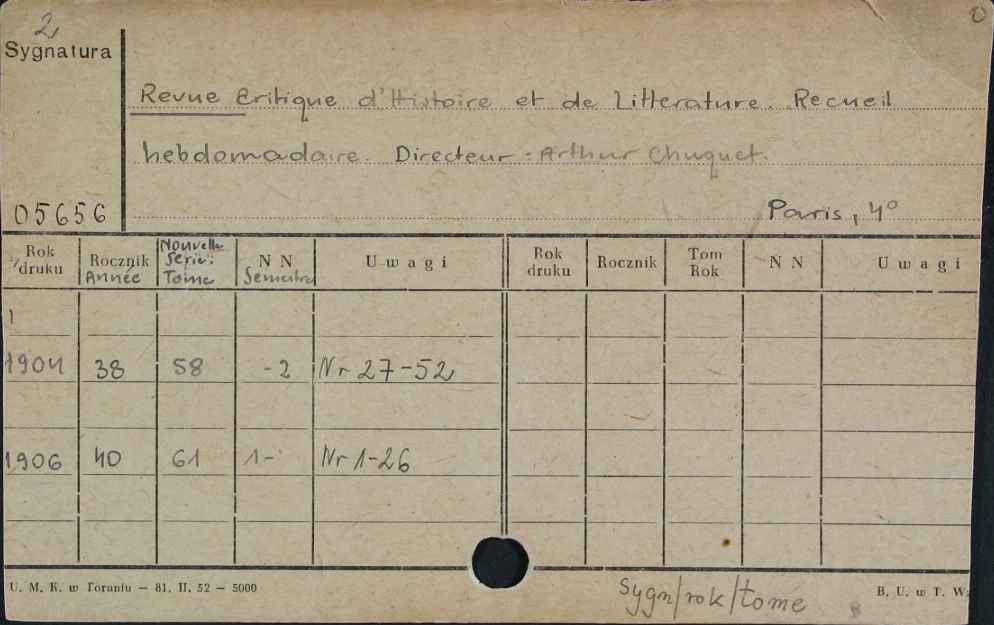 2
Sygnatura
Revue Critique d'Histoire et de Litterature. Recueil
hebdomadaire. Directeur: Arthur Chuquet.
05656
Paris, 4°
Rok druku Rocznik Année Nouvelle Serie: Tome N N Semestre U w a g i Rok druku Rocznik Tom Rok N N U w a g i
1904 38 58 -2 Nr 27-52
1906 40 61 1- Nr 1-26
U. M. K. w Toruniu — 81. II. 52 — 5000
Sygn/rok/tome
B. U. w T. W